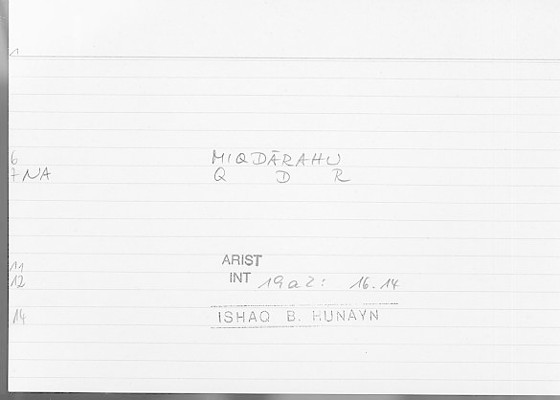 1
6 MIQDĀRAHU
7 NA Q D R
11 ARIST
12 INT 19a2: 16.14
14 ISHAQ B. HUNAYN